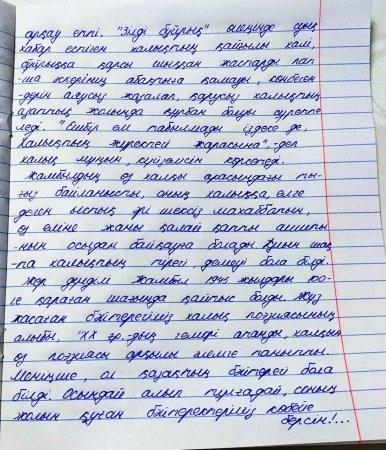 арқау етті. "Зілді бұйрық" өлеңінде суық
хабар естіген халықтың қайғылы халі,
бұйрыққа қарсы шыққан жастарды пат-
ша әскерінің абақтыға қамады, көнбеген-
дерін аяусыз жазалап, қарусыз халықтың
азаттық жолында құрбан болуы суретте-
леді. "Ешбір ем табылмады іздесе де,
Халықтың жүректегі жарасына", - деп
халық мұңын, күйзелісін көрсетеді.
Жамбылдың өз халқы арасындағы ты-
ғыз байланысты, оның халыққа, елге
деген ыстық әрі шексіз махаббатын,
өз еліне жаны қалай қатты ашиты-
нын осыдан байқауға болады. Қиын шақ-
та халықтың тірегі, демеуі бола білді.
Жыр дүлділі Жамбыл 1945 жылдары 100-
ге қараған шағында қайтыс болды. Жүз
жасаған бәйтерегіміз халық поэзиясының
алыбы, "XX ғ-дың Гомері атанды, халқын
өз поэзиясы арқылы әлемге танытты.
Меніңше, ол қазақтың бәйтерегі бола
білді. Осындай алып тұлғадай, соның
жолын қуған бәйтеректеріміз көбейе
берсін!...